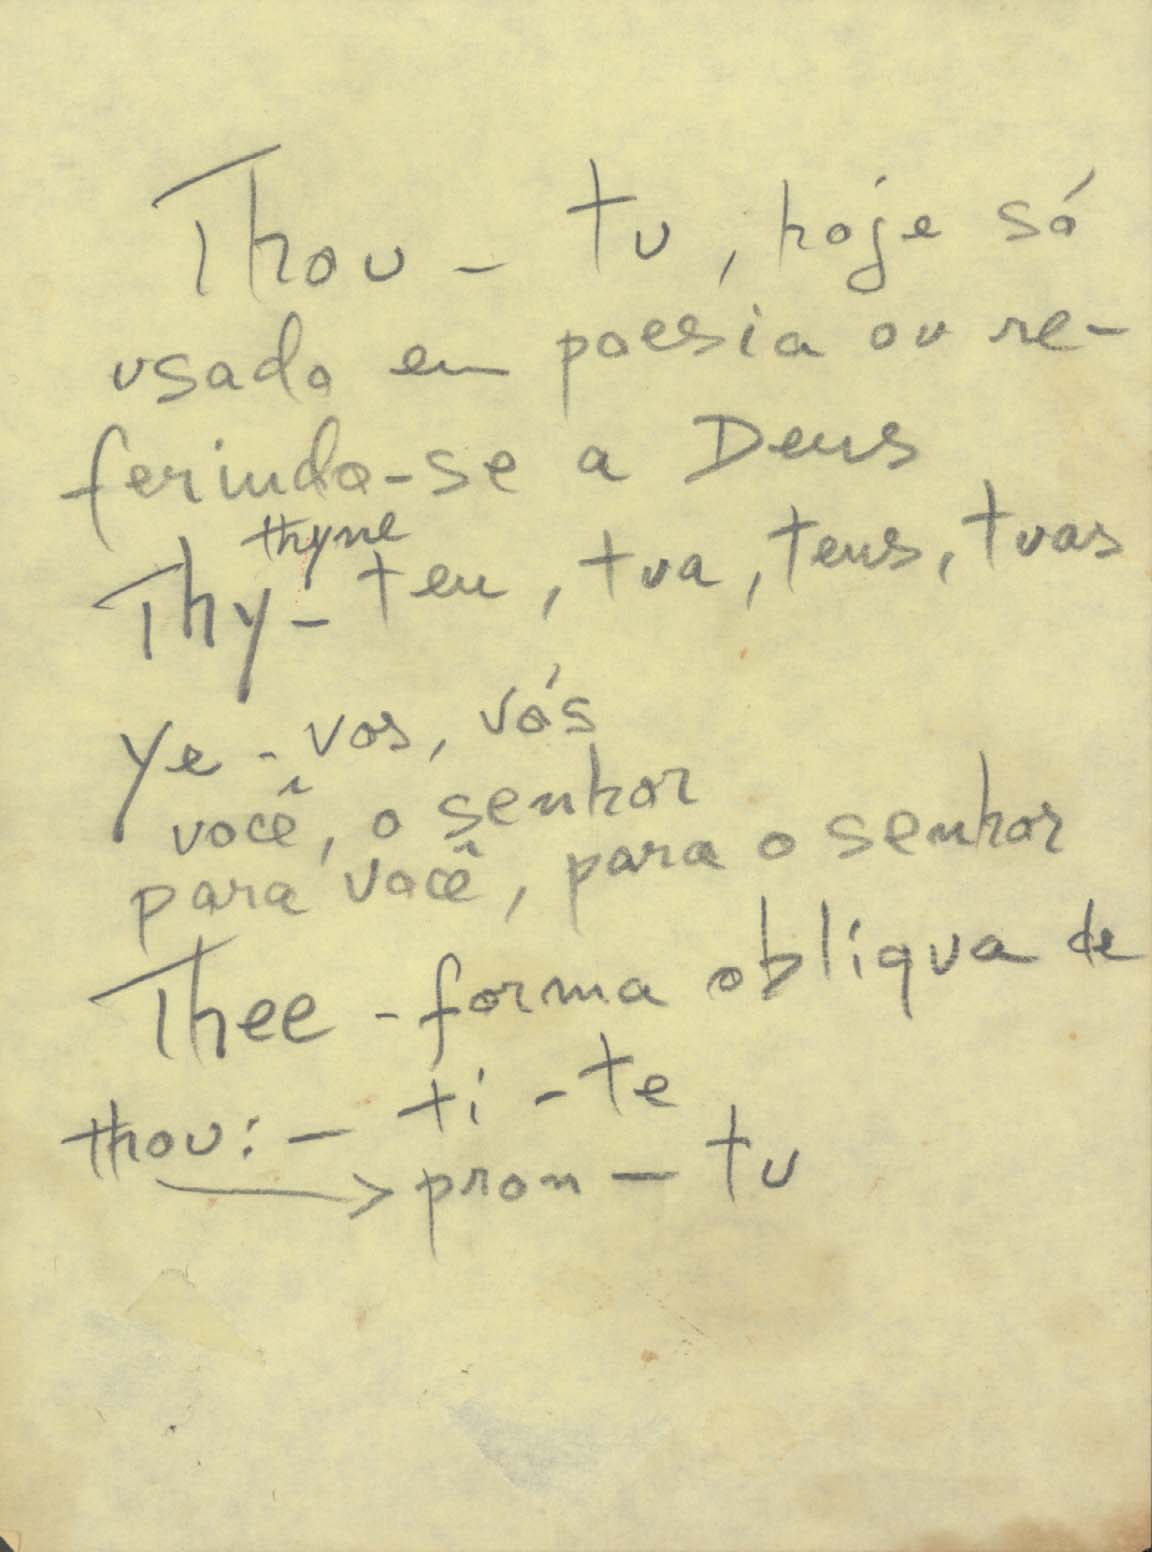 Thou - tu, hoje só
usado em poesia ou re-
ferindo-se a Deus
thyne
Thy - teu, tua, teus, tuas
Ye - vos, vós
você, o senhor
para você, para o senhor
Thee - forma obliqua de
thou: - ti - te
→ pron - tu